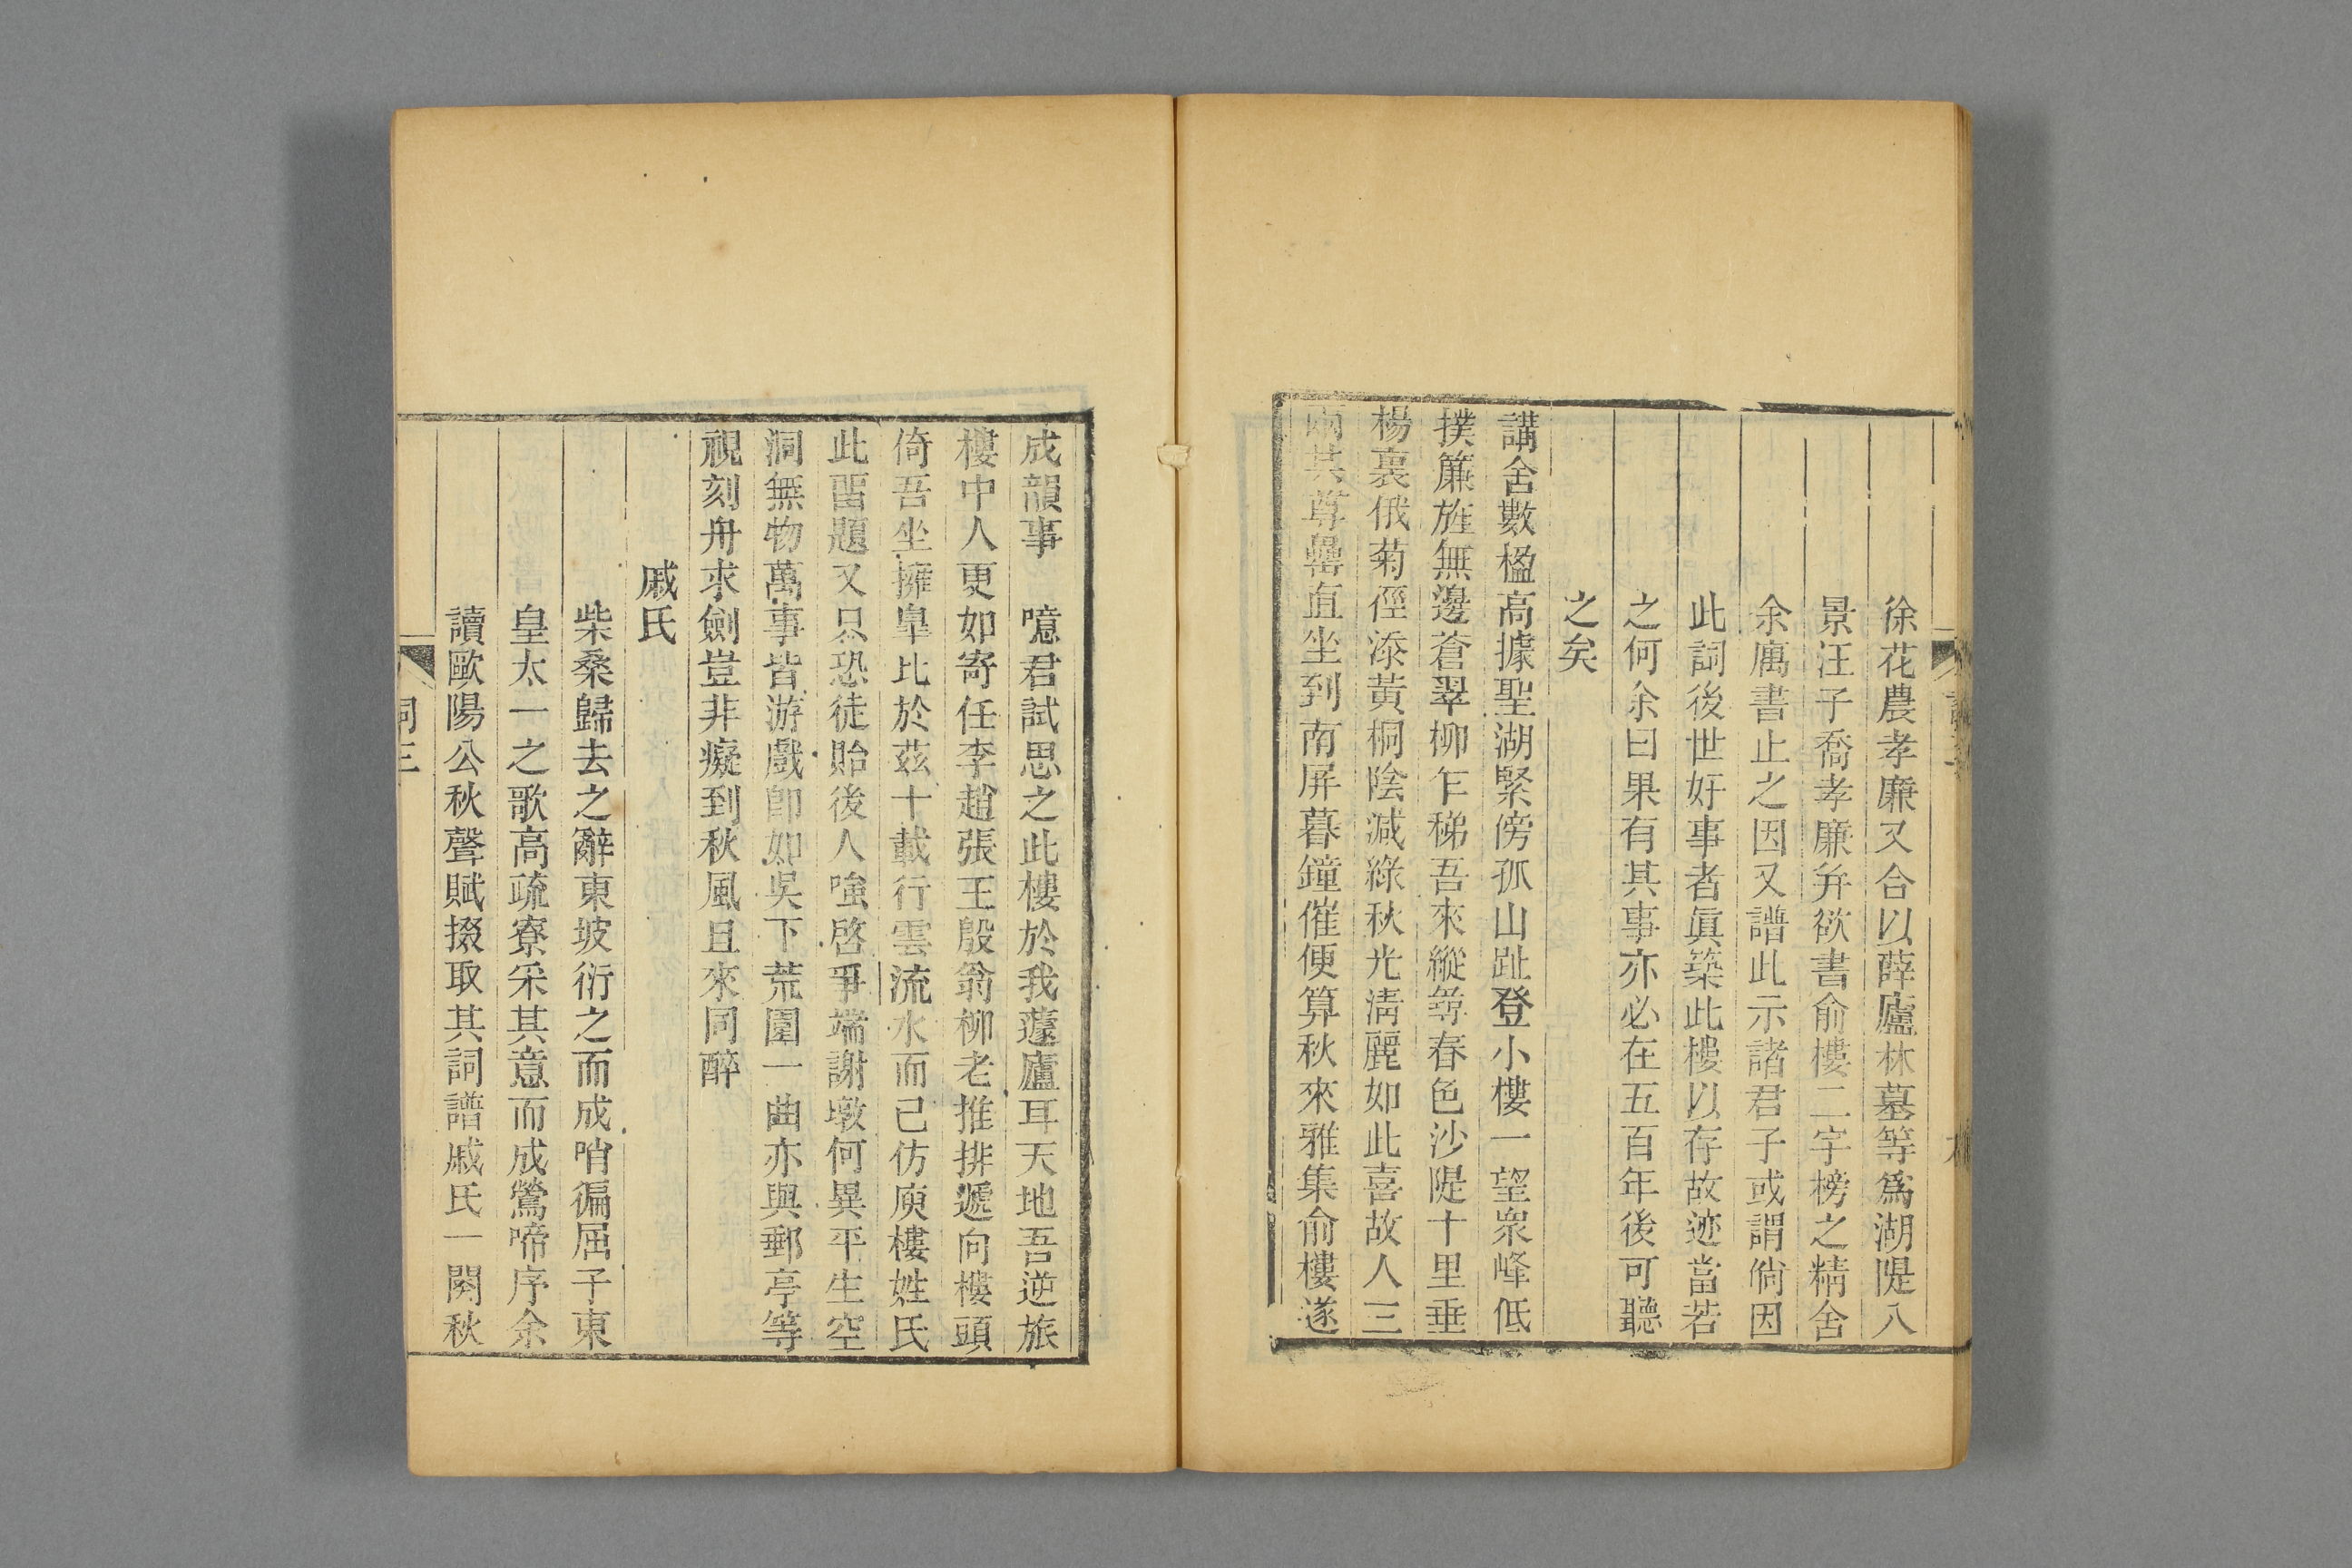 徐花農孝廉又合以薛廬林墓等爲湖隄八
景汪子喬孝廉并欲書俞樓二字榜之精舍
余厲書止之因又譜此示諸君子或謂倘因
此詞後世好事者眞築此樓以存故迹當若
之何余曰果有其事亦必在五百年後可聽
之矣
講舍數楹高據聖湖緊傍孤山趾登小樓一望衆峰低
撲簾旌無邊蒼翠柳乍稊吾來縱尋春色沙隄十里垂
楊裏俄菊徑添黃桐陰減綠秋光淸麗如此喜故人三
兩共尊罍直坐到南屏暮鐘催便算秋來雅集俞樓遂
成韻事　噫君試思之此樓於我蘧廬耳天地吾逆旅
樓中人更如寄任李趙張王殷翁柳老推排遞向樓頭
倚吾坐擁臯比於茲十載行雲流水而已仿庾樓姓氏
此畱題又只恐徒貽後人嗤啓爭端謝墩何異平生空
洞無物萬事皆游戲卽如吳下荒園一曲亦與郵亭等
視刻舟求劍豈非癡到秋風且來同醉
戚氏
柴桑歸去之辭東坡衍之而成哨徧屈子東
皇太一之歌高疏寮采其意而成鶯啼序余
讀歐陽公秋聲賦掇取其詞譜戚氏一闋秋
詞三